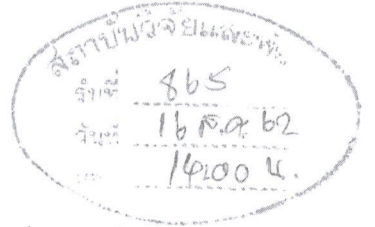 สถาบันวิจัยและพัฒ
รับที่ 865
วันที่ 16 ส.ค. 62
14.00 น.